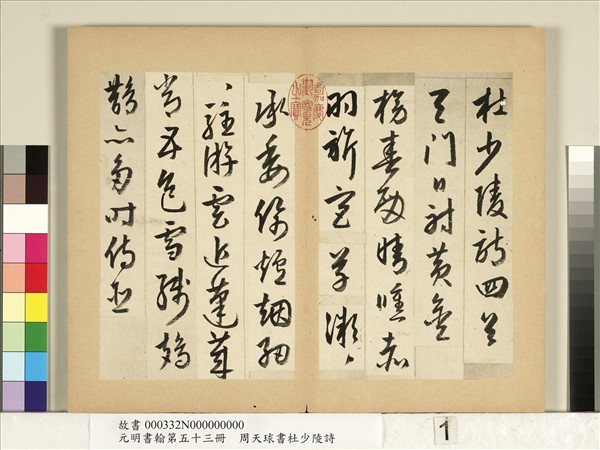 杜少陵詩四首
天門日射黃金
榜春殿晴曛赤
羽旂宮草微〻
承委佩爐烟細
〻駐游雲近蓬萊
常五色雪殘鳷
鵲亦多時侍臣
嘉慶御覽之寶
故書 000332N000000000
元明書翰第五十三冊 周天球書杜少陵詩
1